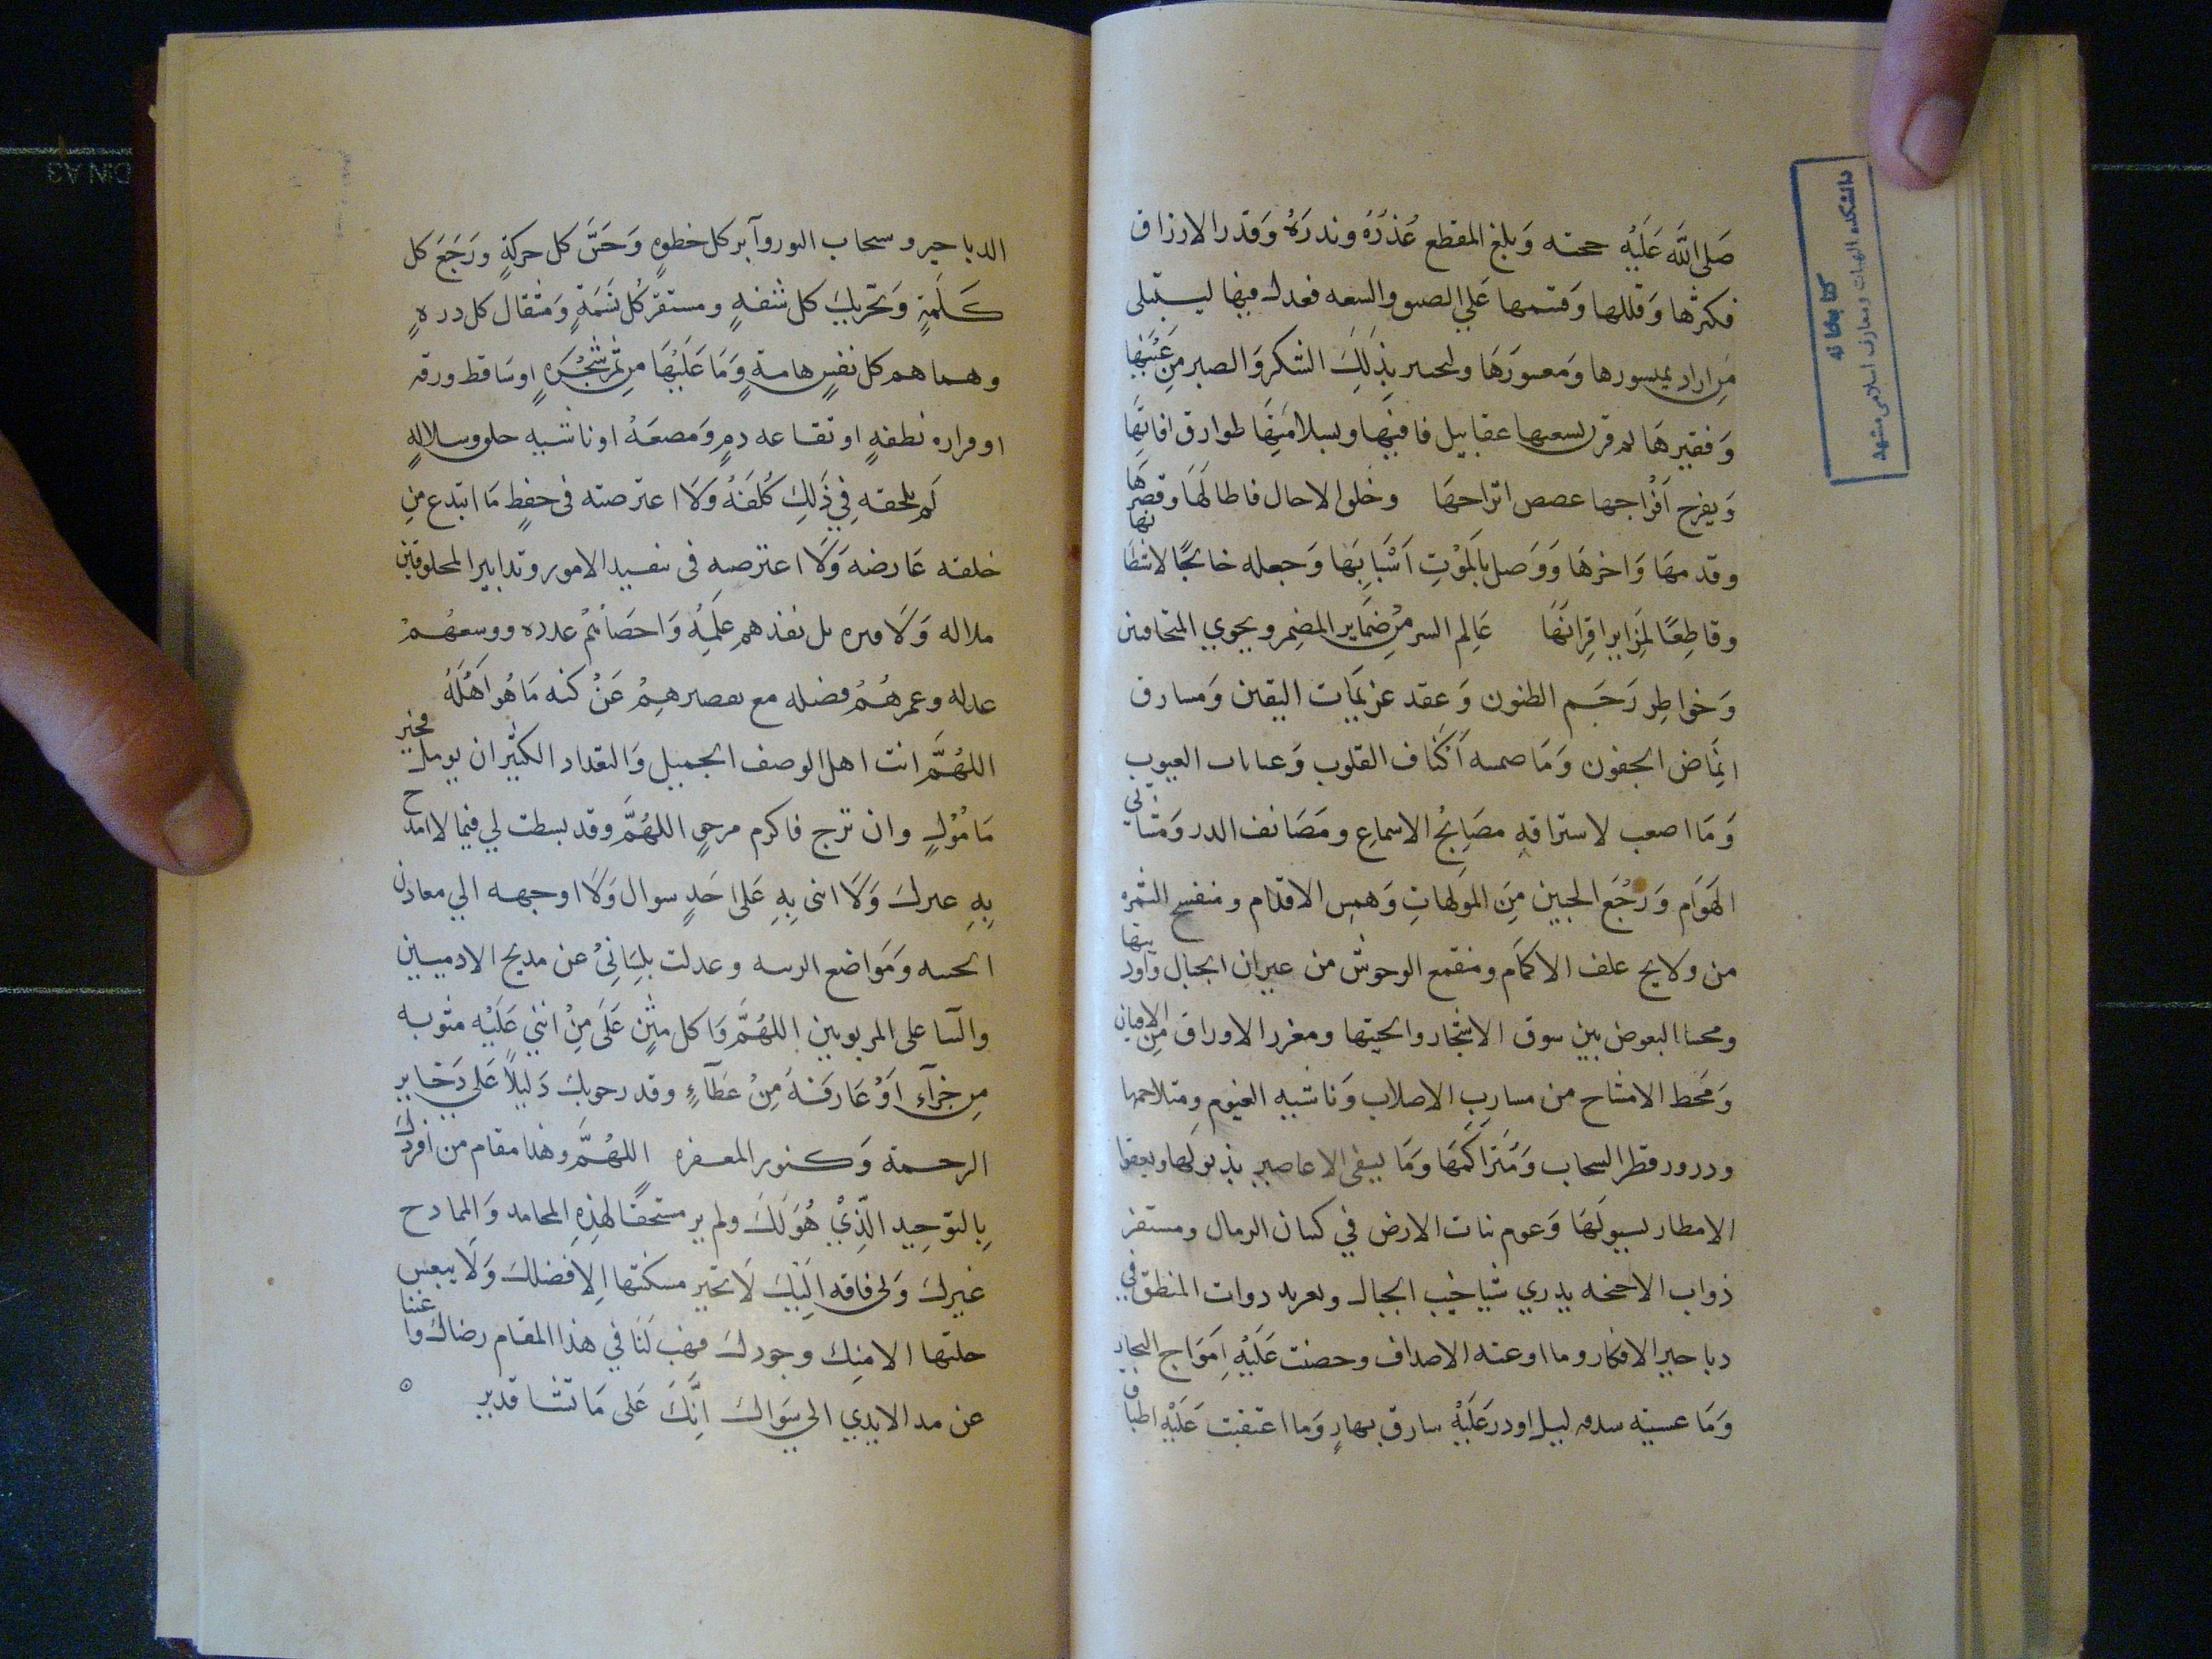 صَلى اللَّه عَلَيْهِ حجته وَبلغ المقطع عُذْرُهُ ونذرَهُ وَقدر الارزاق
فكثرها وَقللها وَقسمها عَلي الضيق والسعه فعدل فيها ليبتلى
مَن اراد بميسورها وَمعسورَهَا وليختبر بِذلِكَ الشكر وَالصبر مِن غَنِيّها
وَفقيرهَا ثم قرن بسعتها عقابيل فاقتِها وبسلامَتِهَا طوارق افاتِهَا
وَبفرج اَفْراجها غصص اتراحهَا وخلق الاجال فاطالَهَا وقصرهَا
وقدمهَا وَاخرهَا وَوَصل بالَمْوتِ اَسْبَابَها وَجعله خالجًا لاشطانها
وقاطِعًا لمَرَاير اقِرانهَا عَالِم السر مِنْ ضَمَايِر المضمِر ونجوي المتخافتين
وَخواطِر رَجَم الظنون وَعقد عزيمَات اليقين وَمسارق
ايمَاض الجفون وَمَا ضمنته اَكنَاف القلوب وَغيابات الغيوب
وَمَا اصغت لاستراقهِ مصَايخُ الاسماعِ ومَصَائف الذر وَمشاتي
الهَوام وَرَجْعَ الحنين مِنَ المَولهاتِ وَهمس الاقدام ومنفسح الثمره
من ولايج غلف الاكمَام ومنقمع الوحوش من غيران الجبال واوديتها
ومختبا البعوض بين سوق الاشجار والحيتها ومغرز الاوراق من الافنان
وَمحَط الامشاج من مساربِ الاصلاب وَناشيه الغيوم ومتلاحمها
ودرور قطر السحاب وَمُتراكَمهَا وَمَا تسفى الاعاصير بذيولها وتعفوا
الامطار بسيولَهَا وَعوم بنات الارض في كثبان الرمال ومستقر
ذوات الاجنحه بذري شناخيب الجبال وتغريد ذوات المنطق في
دياجير الاوكار وما اوعته الاصداف وحضنت عَلَيْهِ اَمواج البحار
وَمَا غشيته سدفه ليل اوذر عَلَيْهِ شارق نهارٍ وَما اعتقبت عَلَيْهِ اطباق
الدياجير وسحاب النور وآثر كل خطوهٍ وَحَسَّ كل حركةٍ ورَجَعَ كل
كَلمَةٍ وَتحريك كل شفهٍ ومستقر كُل نَسَمَةٍ وَمثقال كل ذرهٍ
وهماهم كل نفسٍ هامةٍ وَمَا عَلَيْهَا مِن ثمر شَجْرَهٍ اوسَاقط ورقه
او قراره نطفهٍ او نقاعه دمٍ وَمضغَهُ او ناشيه خلق وسلالهٍ
لَم يلحقه فِي ذَلِكَ كُلفَهُ وَلَا اعترضته فى حفظٍ مَا ابتدع مِن
خلقه عَارضه وَلَا اعترضته فى تنفيذ الامور وتدابير المخلوقين
ملاله وَلَا فتره بل نفذهم عِلمُهُ وَاحصَاهُمْ عدده ووسِعهُمْ
عدله وعمرهُمْ فضله مع تقصيرهِمْ عَنْ كنه مَا هُو اَهْلَهُ
اللهُمَّ انت اهل الوصف الجميل وَالتعداد الكثير ان يومل فخير
مَامُوْلٍ وان ترج فاكرم مرجوٍ اللهُمَّ وقد بسطت لي فيمَا لا امدح
بِهِ غيرك وَلَا اثنى بِهِ عَلى احَدٍ سواك وَلَا اوجهه الي معادن
الخيبه وَمَواضع الريبه وعدلت بلِسَانِيْ عن مديح الادميين
والثنا على المربوبين اللهُمَّ وَلكل مثنٍ عَلَى مَنْ اثني عَلَيْه مثوبه
مِن جزآءٍ اَوْ عَارفهُ مِنْ عَطآءٍ وقد رجوتك دَليلاً عَلى ذَخاير
الرحمة وَكنوز المغفره اللهُمَّ وهذا مقام من افردك
بِالتوحِيدِ الَّذِيْ هُوَ لَكَ ولم ير مستحقًا لهِذِهِ المحامد وَالممادح
غيرك وَلى فاقه الَيْكَ لَا يجبر مسكنتها الا فضلك وَلَا ينعش من
خلتها الا منك وجودك فهب لَنَا في هذا المقام رضاك واغننا
عن مد الايدي الي سَواك انَّكَ عَلى مَا تشا قدير
کتابخانه
دانشکده الهیات ومعارف اسلامی مشهد
DIN A3